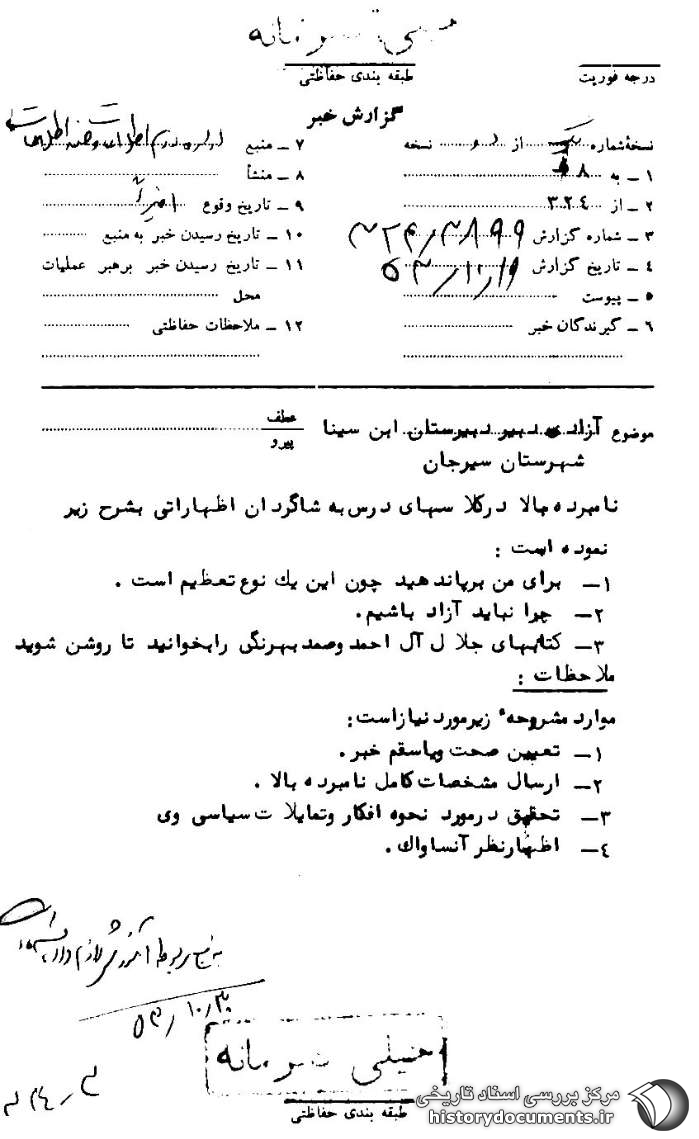 خیلی محرمانه
درجه فوریت
طبقه بندی حفاظتی
گزارش خبر
نسخهٔ شماره یک از دو نسخه
۱ ـ به
۲ ـ از ۳۲٤
۳ ـ شماره گزارش
٤ ـ تاریخ گزارش
۵ ـ پیوست
۶ ـ گیرندگان خبر
۷ ـ منبع
۸ ـ منشأ
۹ ـ تاریخ وقوع اخیراً
۱۰ ـ تاریخ رسیدن خبر به منبع
۱۱ ـ تاریخ رسیدن خبر برهبر عملیات
محل
۱۲ ـ ملاحظات حفاظتی
موضوع آزادی دبیر دبیرستان ابن سینا
شهرستان سیرجان
عطف
پیرو
نامبرده بالا در کلاسهای درس به شاگردان اظهاراتی بشرح زیر
نموده است :
۱ـ برای من برپا ندهید چون این یك نوع تعظیم است .
۲ـ چرا نباید آزاد باشیم .
۳ـ کتابهای جلال آل احمد وصمد بهرنگی رابخوانید تا روشن شوید
ملاحظات :
موارد مشروحه زیر مورد نیاز است :
۱ـ تعیین صحت ویاسقم خبر .
۲ـ ارسال مشخصات کامل نامبرده بالا .
۳ـ تحقیق در مورد نحوه افکار وتمایلات سیاسی وی
٤ـ اظهارنظر آنساواك .
۵۳/۱۰/۳۰
خیلی محرمانه
طبقه بندی حفاظتی
مرکز بررسی اسناد تاریخی
historydocuments.ir